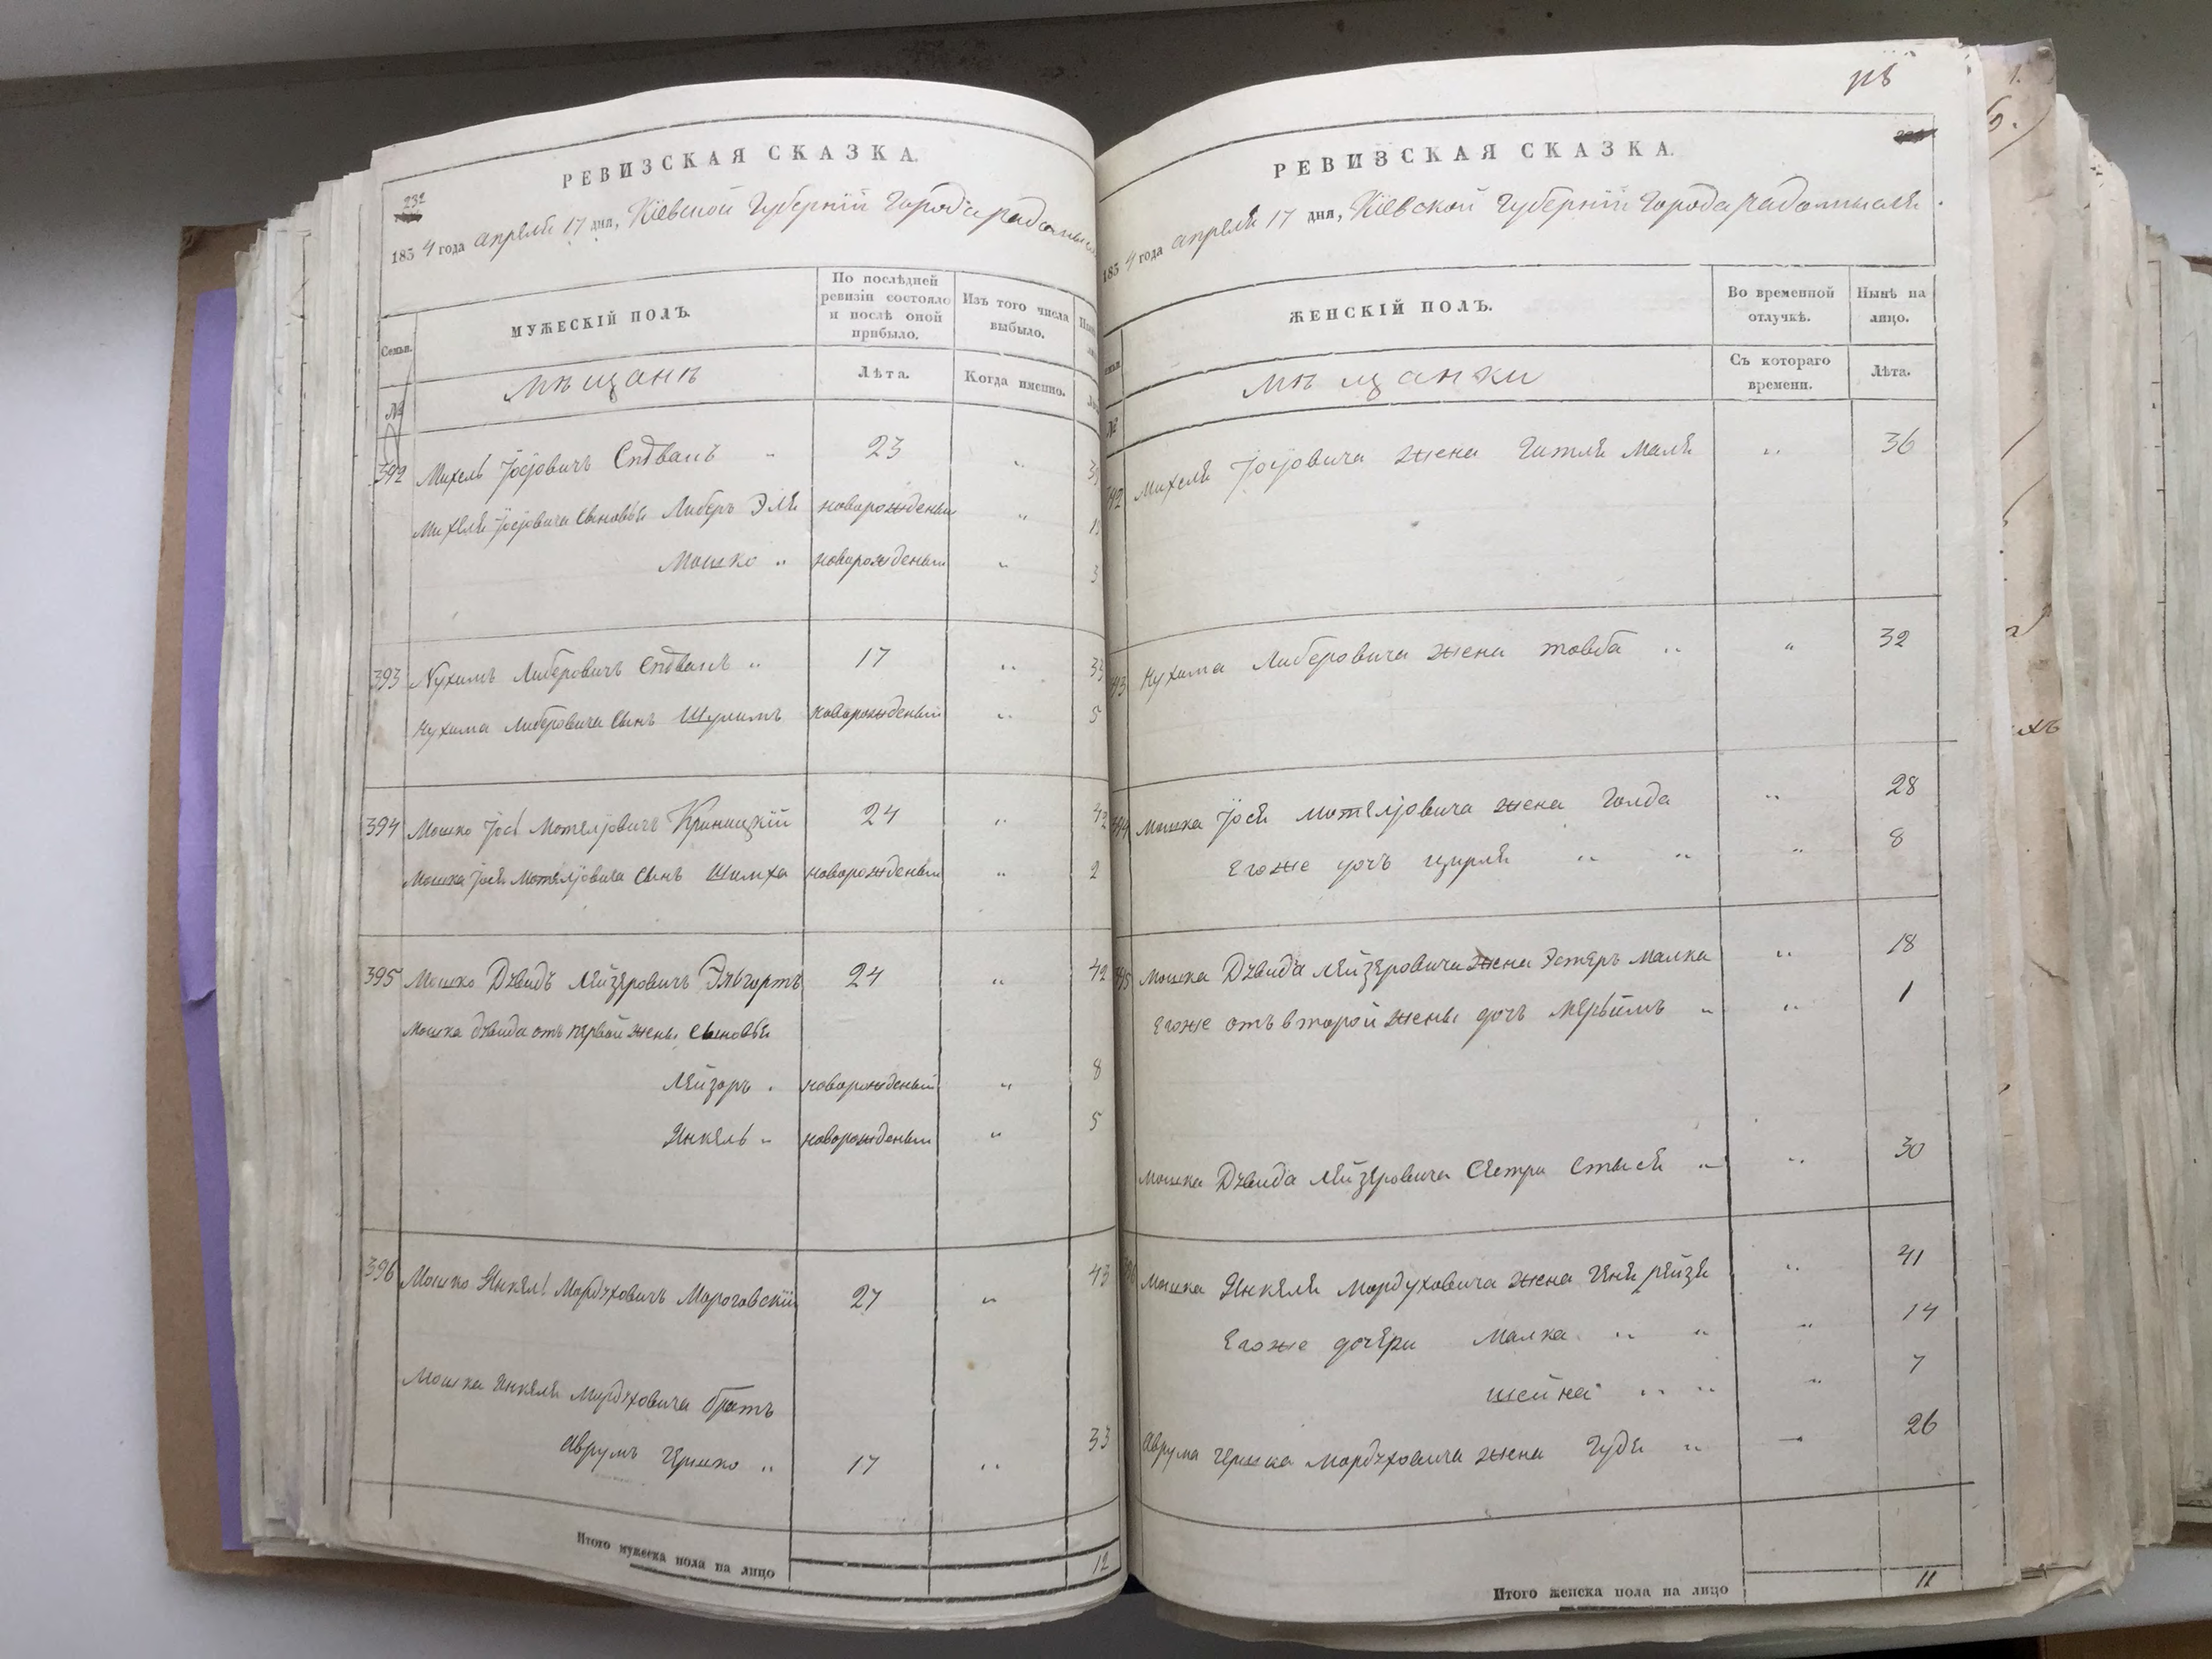 232
РЕВИЗСКАЯ СКАЗКА.
1854 года апреля 17 дня, Кіевской Губерніи Города Радомысля
Семьи.
МУЖЕСКІЙ ПОЛЪ.
По послѣдней ревизіи состояло и послѣ оной прибыло.
Изъ того числа выбыло.
№
мѣщанъ
Лѣта.
Когда именно.
392 Михель Іосіовичъ Спѣвакъ " 23 "
Михеля Іосіовича сыновья Либеръ Эля новорожденый "
Мошко " новорожденый " 3
393 Нухимъ Либеровичъ Спѣвакъ " 17 " 33
Нухима Либеровича сынъ Шулимъ новорожденый " 5
394 Мошко Іось Мотеліовичъ Криницкій 24 " 42
Мошка Іося Мотеліовича сынъ Шимха новорожденый " 2
395 Мошко Дувидъ Лейзеровичъ 24 " 42
Мошка Дувида отъ первой жены сыновья
Лейзоръ " новорожденый " 8
Янкель " новорожденый " 5
396 Мошко Янкель Мордуховичъ Мороговскій 27 " 43
Мошка Янкеля Мордуховича братъ
Аврумъ Гершко " 17 " 33
Итого мужеска пола на лицо 12
РЕВИЗСКАЯ СКАЗКА.
1854 года апреля 17 дня, Кіевской Губерніи Города Радомысля.
ЖЕНСКІЙ ПОЛЪ.
Во временной отлучкѣ.
Нынѣ на лицо.
№
мѣщанки
Съ котораго времени.
Лѣта.
Михеля Іосіовича жена Гитля Маля " 36
Нухима Либеровича жена Товба " " 32
Мошка Іося Мотеліовича жена Голда " 28
Егоже дочь Цирля " " " 8
Мошка Дувида Лейзеровича жена Эстеръ Малка " 18
Егоже отъ второй жены дочь " " 1
Мошка Дувида Лейзеровича сестра Стыся " " 30
Мошка Янкеля Мордуховича жена Геня Рейзя " 41
Егоже дочери Малка " " " 14
Шейна " " " 7
Аврума Гершка Мордуховича жена Гудя " 26
Итого женска пола на лицо 11